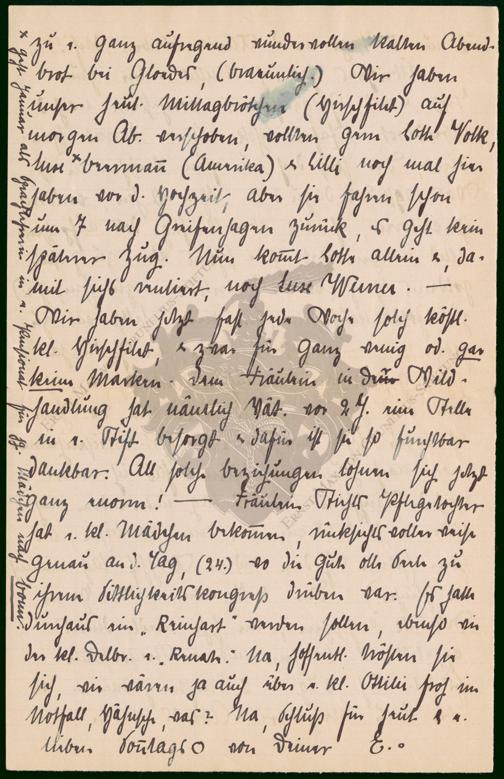 zu e. ganz aufregend wundervollen kalten Abend-
brot bei Gloedes, (bräunlich.) Wir haben
unser heut. Mittagbrötchen (Hirschfilet) auf
morgen Ab. verschoben, wollten gern Lotte Volk,
Luse × (Amerika) & Lilli noch mal hier
haben vor d. Hochzeit, aber sie fahren schon
um 7 nach Greifenhagen zurück, es geht kein
späterer Zug. Nun kommt Lotte allein &, da-
mit sichs rentiert, noch Luse Werner. —
Wir haben jetzt fast jede Woche solch köstl.
kl. Hirschfilet, & zwar für ganz wenig od. gar
keine Marken. Dem Fräulein in der Wild-
handlung hat nämlich Vät. vor 2 J. eine Stelle
in e. Stift besorgt & dafür ist sie so furchtbar
dankbar. All solche Beziehungen lohnen sich jetzt
ganz enorm! — Fräulein Pflegetochter
hat e. kl. Mädchen bekommen, rücksichtsvoller weise
genau an d. Tag, (24.) wo die Gute olle Perle zu
ihrem Sittlichkeitskongreß drüben war. Es hatte
durchaus ein „Reinhart" werden sollen, ebenso wie
der kl. Delbr. e. „Renate." Na, hoffentl. trösten sie
sich, wir wären ja auch über e. kl. Ottilie froh im
Notfall, was? Na, Schluß für heut & e.
lieben Sonntags O von Deiner E..
× geht Januar als Sprachlehrerin in e. Pensionat für Mädchen nach Bonn.